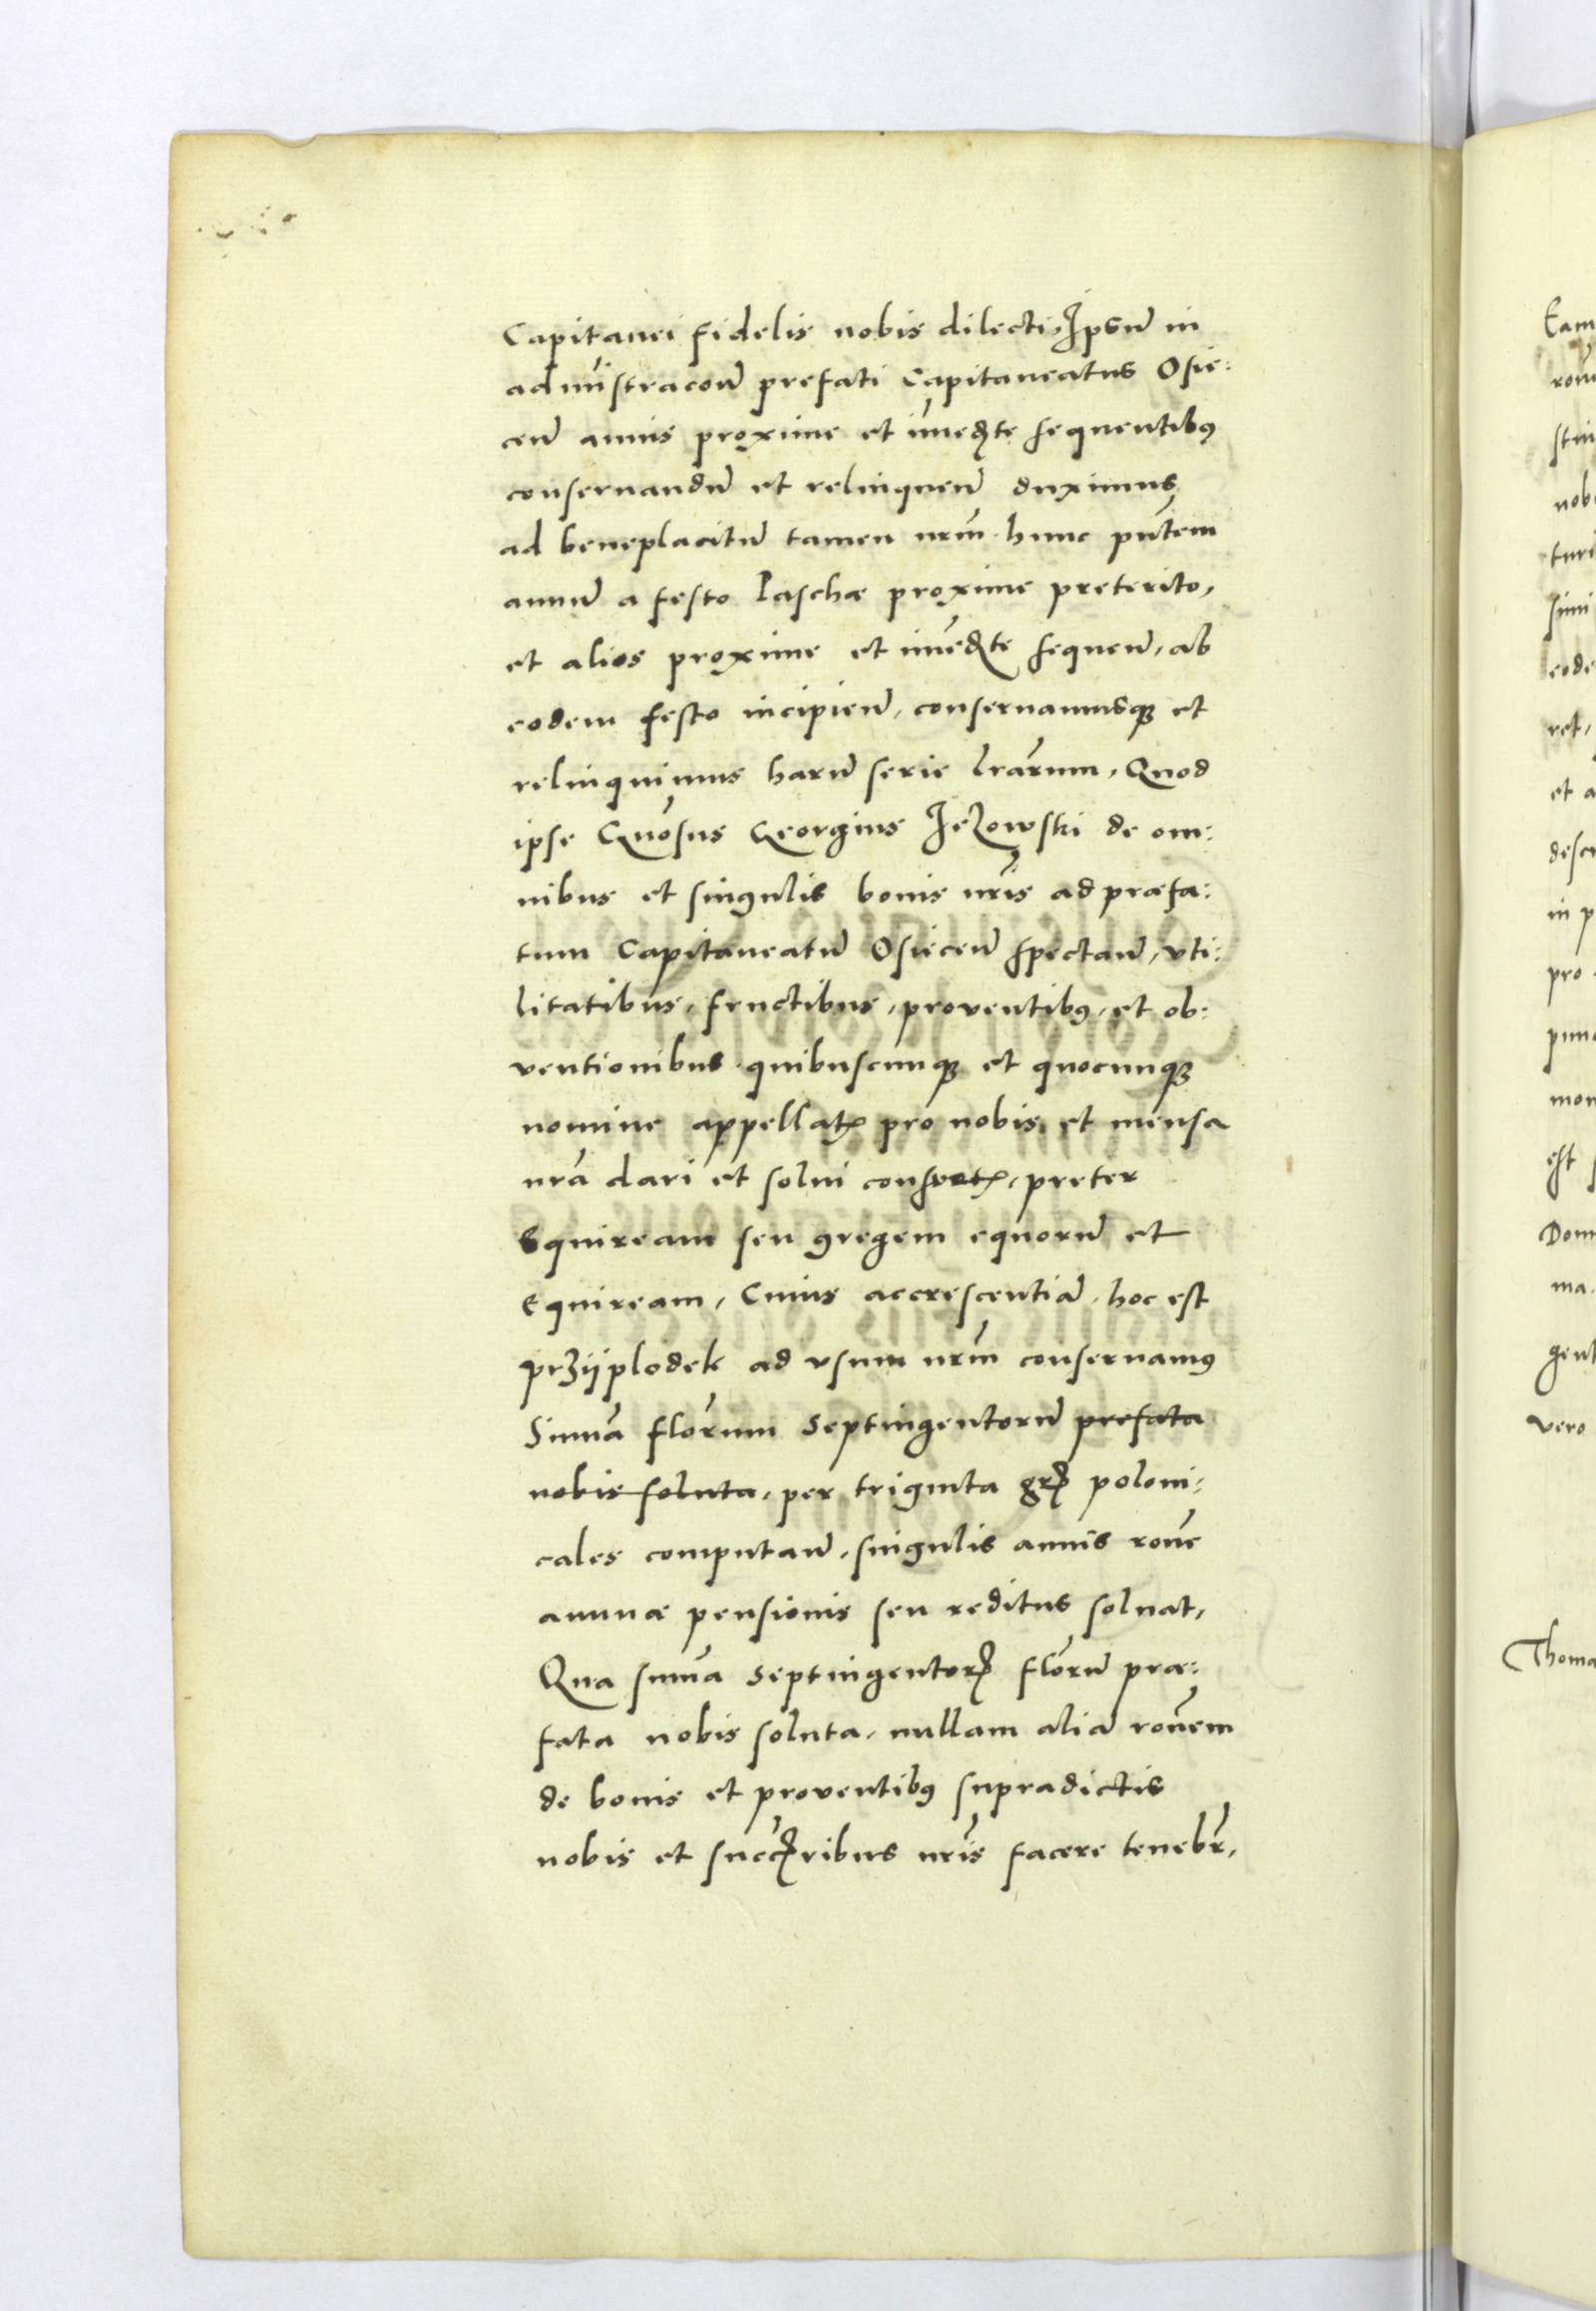 Capitanei fidelis nobis dilecti, Ipsum̄ in
admīstracoem̄ prefati Capitaneatus Osie:
cen̄ annis proxime et īmediāte sequentibꝰ
conseruandū et relinquen̄ duximus
ad beneplacitū tamen nr̄m hunc pn̄tem
annū a festo Paschæ proxime preterito,
et alios proxime et īmediāte sequen̄, ab
eodem festo incipien̄, conseruamusqꝫ et
relinquimus harū serie lr̄arum, Quod
ipse Gn̄osus Georgius Jezowski de om:
nibus et singulis bonis nr̄is ad præfa:
tum Capitaneatū Osiecen̄ spectan̄, vti:
litatibus, fructibus, proventibꝰ, et ob:
ventionibus quibuscunqꝫ et quocunqꝫ
nomine appellatꝭ pro nobis et mensa
nr̄a dari et solui consuetꝭ, preter
Equiream seu gregem equorū et
Equiream, Cuius accrescentiā, hoc est
przÿplodek ad vsum nr̄m conseruamꝰ
Sum̄ā flor̄um Septingentorū prefata
nobis soluta, per triginta gr̄ poloni:
cales computan̄, singulis annis rōne
annuæ pensionis seu reditus soluat,
Qua sum̄a Septingentorꝭ flor̄ū præ:
fata nobis soluta, nullam aliā rōnem
de bonis et proventibꝰ supradictis
nobis et succꝭribus nr̄is facere tenebr̄,
Eam
nob
eode
ret,
et a
in p
pro
est
Dom
ma
gent
vero
Thoma